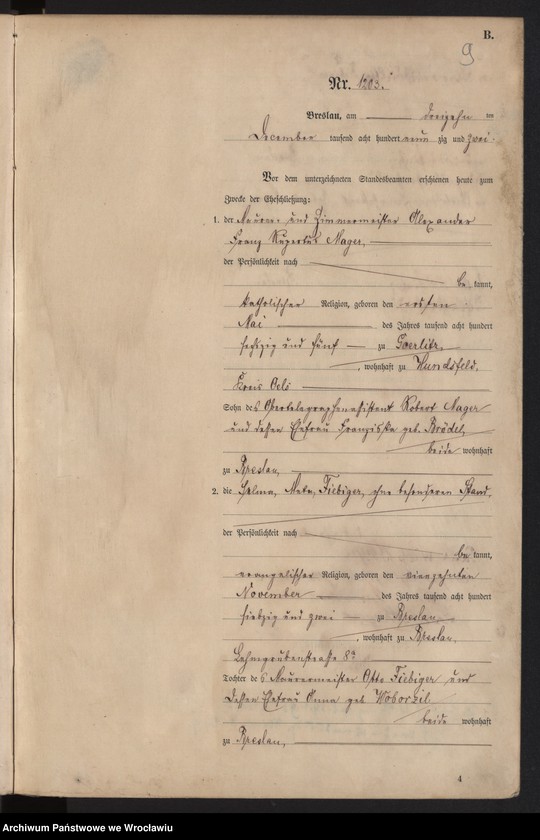 B.
9
Nr. 1203.
Breslau, am dreizehn ten
December tausend acht hundert neun zig und zwei.
Vor dem unterzeichneten Standesbeamten erschienen heute zum
Zwecke der Eheschließung:
1. der Maurer- und Zimmermeister Alexander
Franz Rupertus Mager,
der Persönlichkeit nach
be kannt,
katholischer Religion, geboren den ersten
Mai des Jahres tausend acht hundert
sechzig und fünf zu Goerlitz,
, wohnhaft zu Hundsfeld,
Kreis Oels
Sohn des Obertelegraphenassistent Robert Mager
und dessen Ehefrau Franziska geb. Brödel,
beide wohnhaft
zu Breslau,
2. die Selma, Meta, Fiebiger, ohne besonderen Stand,
der Persönlichkeit nach
be kannt,
evangelischer Religion, geboren den vierzehnten
November des Jahres tausend acht hundert
siebzig und zwei zu Breslau,
, wohnhaft zu Breslau,
Lehmgrubenstraße 8
Tochter des Maurermeister Otto Fiebiger und
dessen Ehefrau Anna geb Woborzil
beide wohnhaft
zu Breslau,
4
Archiwum Państwowe we Wrocławiu